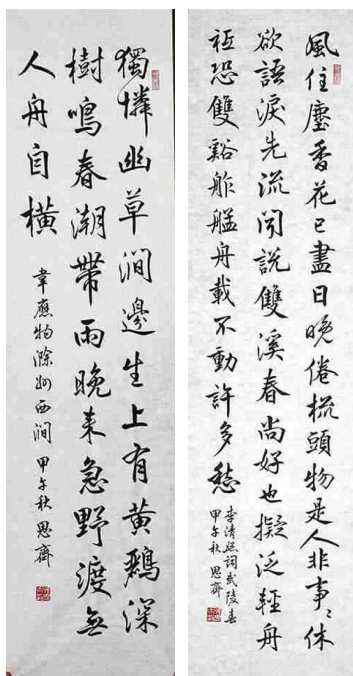 風住塵香花已盡日晚倦梳頭物是人非事〻休
欲語淚先流聞說雙溪春尚好也擬泛輕舟
祗恐雙谿舴艋舟載不動許多愁
李清照詞武陵春
甲午秋 思齊
獨憐幽草澗邊生上有黃鸝深
樹鳴春潮帶雨晚來急野渡無
人舟自橫
韋應物滁州西澗 甲午秋 思齊